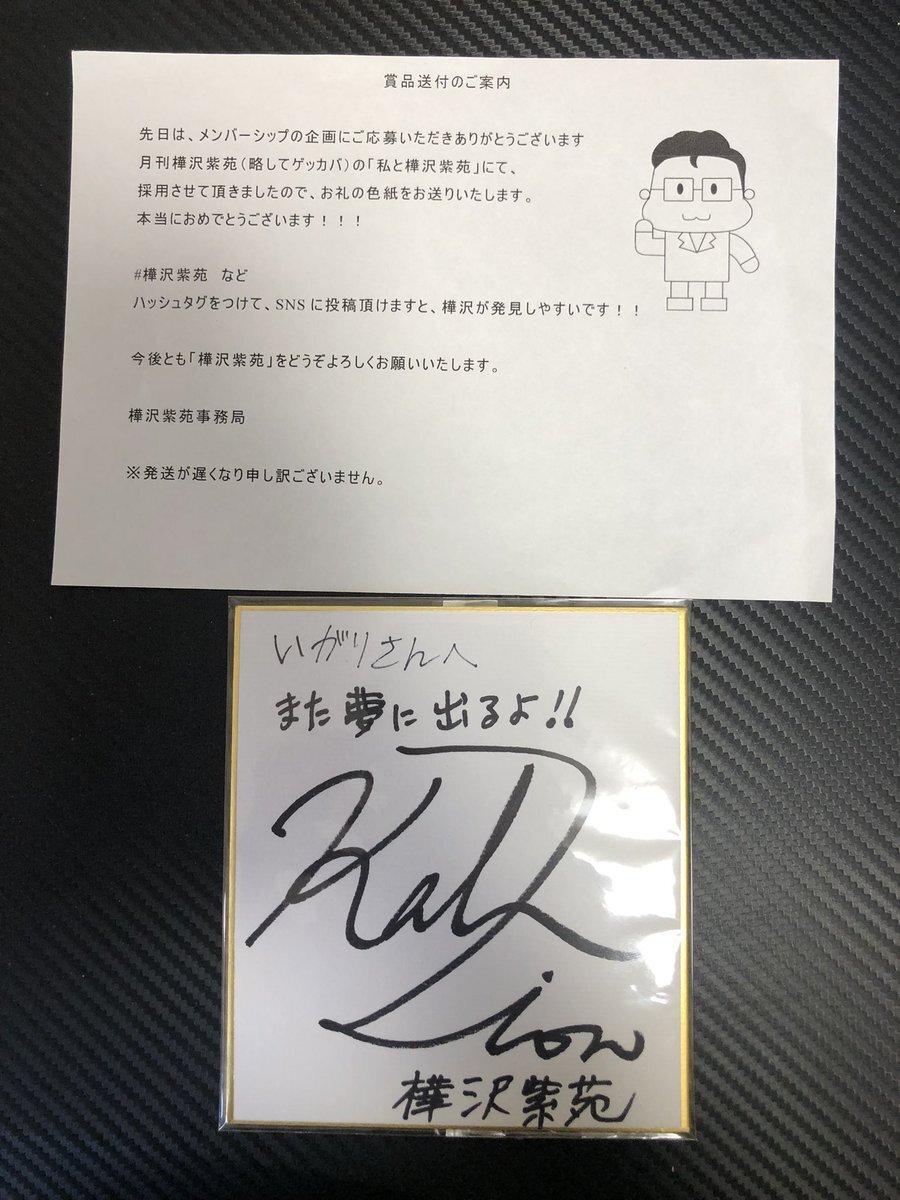 賞品送付のご案内
先日は、メンバーシップの企画にご応募いただきありがとうございます
月刊樺沢紫苑（略してゲッカバ）の「私と樺沢紫苑」にて、
採用させて頂きましたので、お礼の色紙をお送りいたします。
本当におめでとうございます！！！
#樺沢紫苑 など
ハッシュタグをつけて、SNSに投稿頂けますと、樺沢が発見しやすいです！！
今後とも「樺沢紫苑」をどうぞよろしくお願いいたします。
樺沢紫苑事務局
※発送が遅くなり申し訳ございません。
いがりさんへ
また夢に出るよ!!
樺沢紫苑